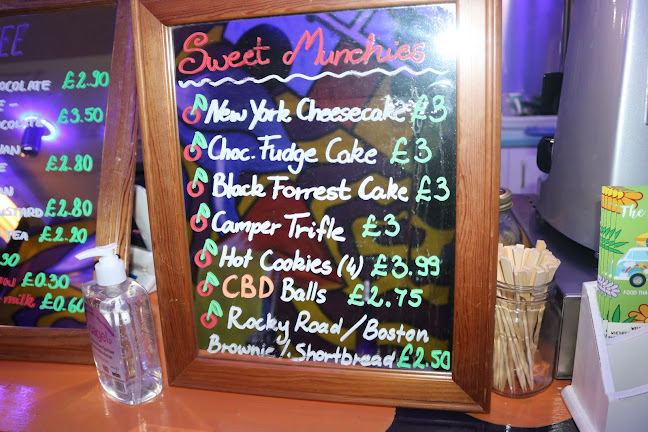 EE
OCOLATE £2.90
£3.50
£2.80
USTARD £2.80
TEA £2.20
£0.30
milk £0.60
Sweet Munchies
New York Cheesecake £3
Choc. Fudge Cake £3
Black Forrest Cake £3
Camper Trifle £3
Hot Cookies (4) £3.99
CBD Balls £2.75
Rocky Road / Boston
Brownie / Shortbread £2.50
The